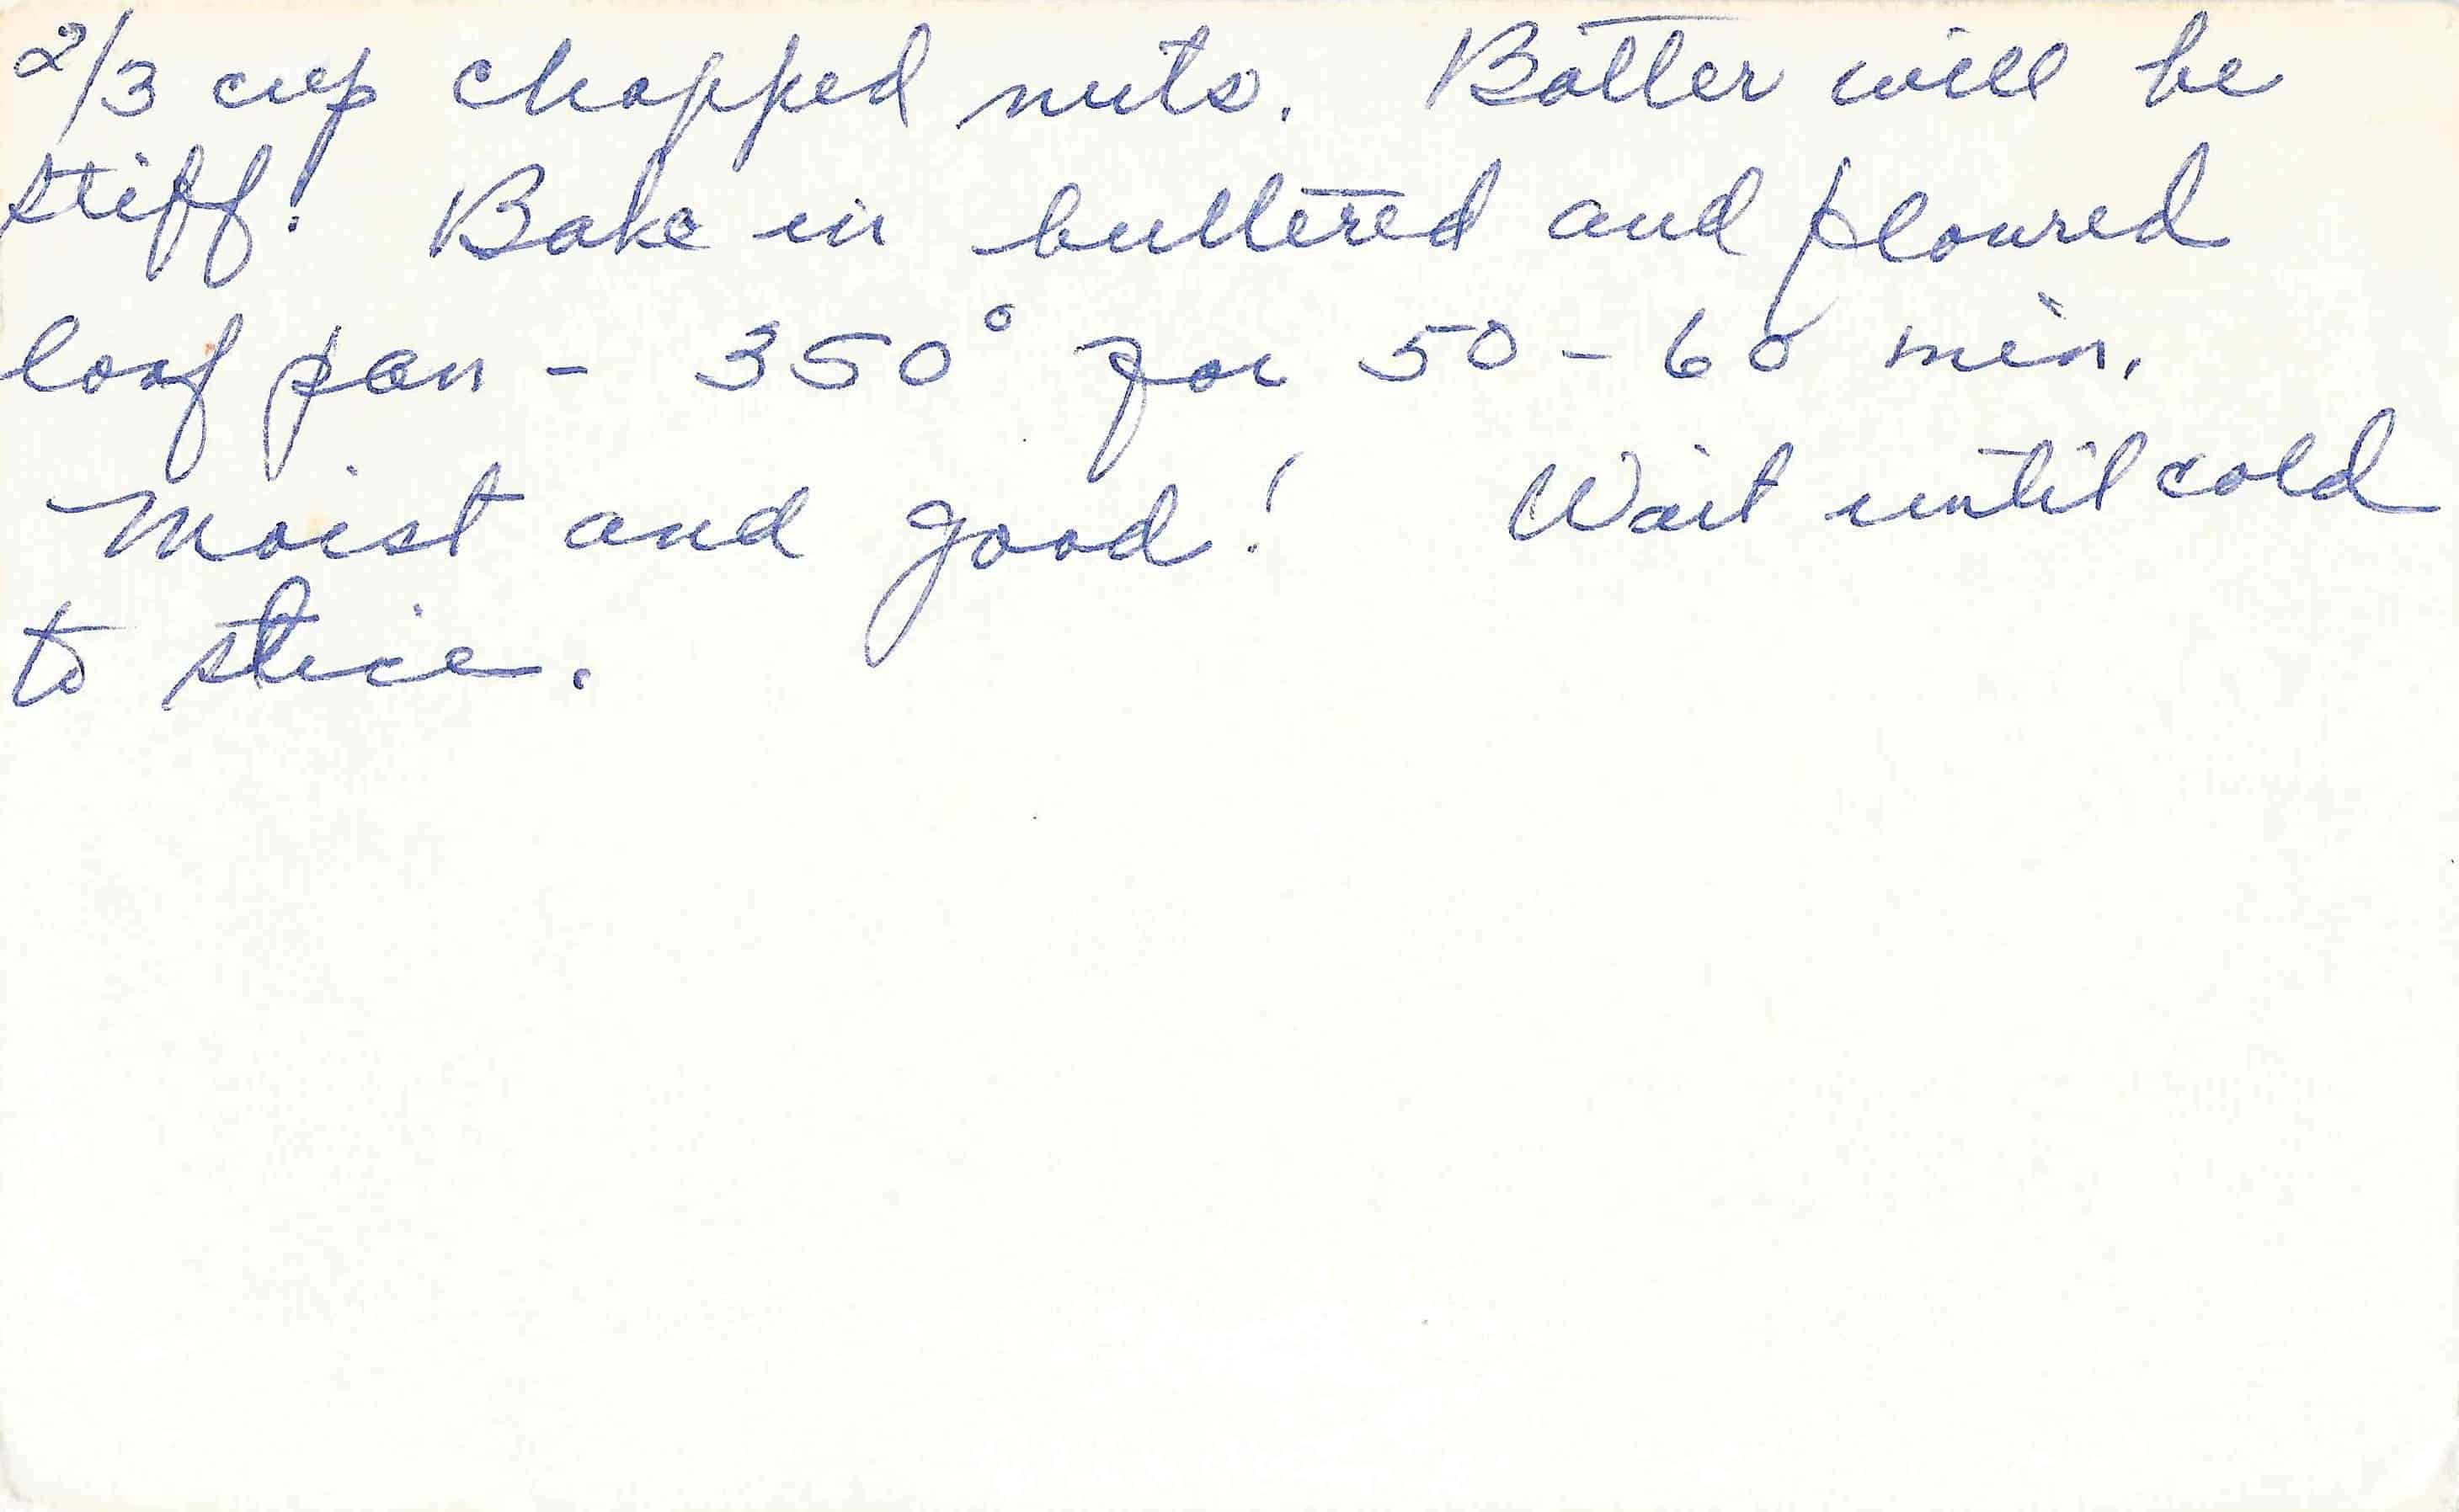 2/3 cup chopped nuts. Batter will be
stiff! Bake in buttered and floured
loaf pan - 350° for 50 - 60 min.
Moist and good! Wait until cold
to slice.